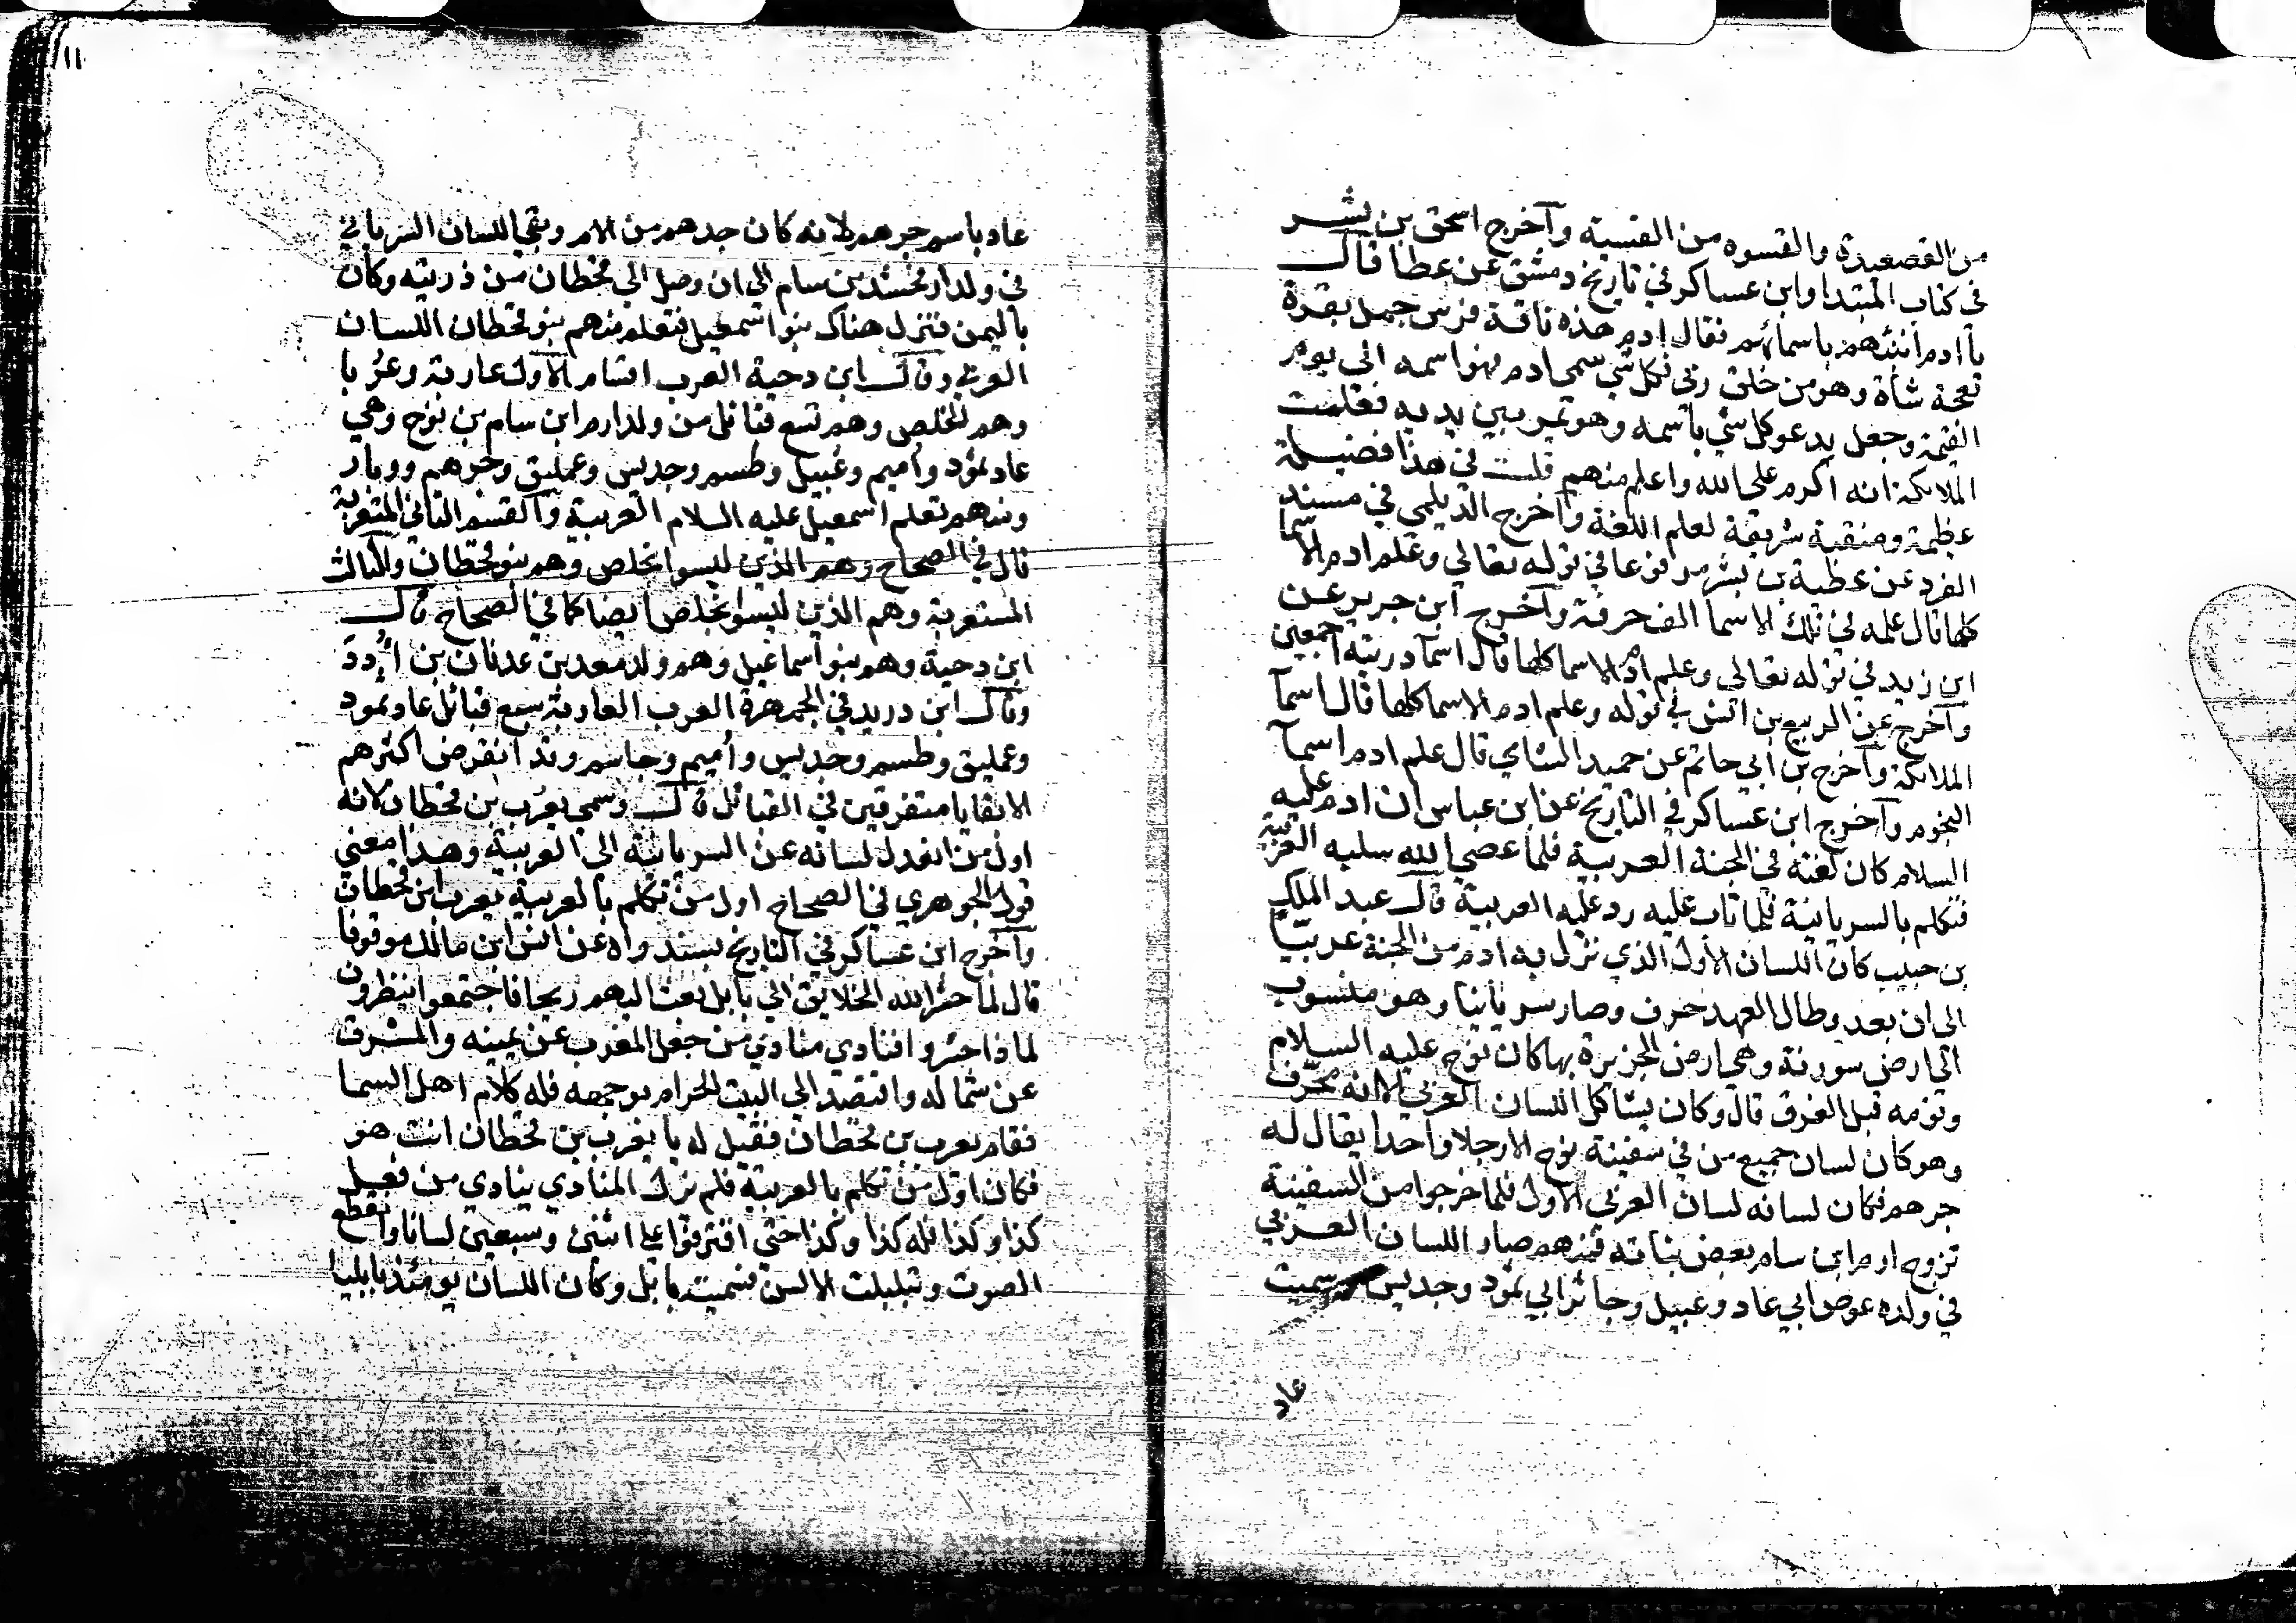 من القصعيدة والقسوه من الفسية وآخرج اسحق بن بشر
فى كتاب المبتدا وابن عساكر في تاريخ دمشق عن عطا قال
يا ادم انبئهم باسمائهم فقال ادم هذه ناقة فرس جمل بقرة
نعجة شاة وهو من خلق ربى فكل شي سمى ادم فهو اسمه الى يوم
القيمة وجعل يدعو كل شي باسمه وهو يمر بين يديه فعلمت
الملائكة انه اكرم على الله واعلم منهم قلت في هذا فضيلة
عظيمة ومنقبة شريفة لعلم اللغة وآخرج الديلمي في مسند
الفرد عن عطية بن بشر مرفوعا في قوله تعالي وعلم ادم الاسما
كلها قال علمه في تلك الاسما الف حرفة وآخرج ابن جرير عن
ابن زيد في قوله تعالي وعلم ادم الاسما كلها قال اسما ذريته اجمعين
وآخرج عن الربيع بن انس في قوله وعلم ادم الاسما كلها قال اسمآ
الملائكة وآخرج بن ابي حاتم عن حميد الشاي قال علم ادم اسمآ
النجوم وآخرج ابن عساكر في التاريخ عن ابن عباس ان ادم عليه
السلام كان لغته في الجنة العربية فلما عصي الله سلبه العربية
فتكلم بالسريانية فلما تاب عليه رد عليه العربية قال عبد الملك
بن حبيب كان اللسان الاول الذي نزل به ادم من الجنة عربيا
الى ان بعد وطال العهد حرف وصار سريانيا وهو منسوب
الى ارض سورنة وهي ارض الجزيرة بها كان نوح عليه السلام
وقومه قبل الغرق قال وكان يشاكل اللسان العربي الا انه محرف
وهو كان لسان جميع من في سفينة نوح الا رجلا واحدا يقال له
جرهم فكان لسانه لسان العربى الاول فلما خرجوا من السفينة
تزوج ارم ابن سام بعض بناته فمنهم صار اللسان العربي
في ولده عوص ابي عاد وعبيل وجاثر ابي ثمود وجديس وسميت
عاد
١١
عاد باسم جرهم لانه كان جدهم من الام وبقي اللسان السرياني
في ولد ارفخشد بن سام الى ان وصل الى قحطان من ذريته وكان
باليمن فنزل هناك بنوا اسمعيل فتعلم منهم بنو قحطان اللسان
العربي وقال ابن دحية العرب اقسام الاول عاربة وعربا
وهم الخلص وهم تسع قبائل من ولد ارم ابن سام بن نوح وهي
عاد ثمود واميم وعبيل وطسم وجديس وعمليق وجرهم ووبار
ومنهم تعلم اسمعيل عليه السلام العربية والقسم الثاني المتعربة
قال في الصحاح وهم الذين ليسوا بخلص وهم بنو قحطان والثالث
المستعربة وهم الذين ليسوا بخلص ايضا كما في الصحاح قال
ابن دحية وهم بنو اسماعيل وهم ولد معد بن عدنان بن ادد
وقال ابن دريد في الجمهرة العرب العاربة سبع قبائل عاد ثمود
وعمليق وطسم وجديس واميم وجاسم وقد انقرض اكثرهم
الا بقايا متفرقين في القبائل قال وسمي يعرب بن قحطان لانه
اول من انعدل لسانه عن السريانية الى العربية وهذا معني
قول الجوهري في الصحاح اول من تكلم بالعربية يعرب ابن قحطان
وآخرج ابن عساكر في التاريخ بسند رواه عن انس ابن مالك موقوفا
قال لما حشر الله الخلايق الى بابل بعث اليهم ريحا فاجتمعوا ينظرون
لما ذا حشروا فنادي منادي من جعل المغرب عن يمينه والمشرق
عن شماله واقتصد الى البيت الحرام بوجهه فله كلام اهل السما
فقام يعرب بن قحطان فقيل له يا يعرب بن قحطان انت هو
فكان اول من تكلم بالعربية فلم يزل المنادي ينادي من فعل
كذا وكذا فله كذا وكذا حتى افترقوا على اثنين وسبعين لسانا وانقطع
الصوت وتبلبلت الالسن فسميت بابل وكان اللسان يومئذ بابليا